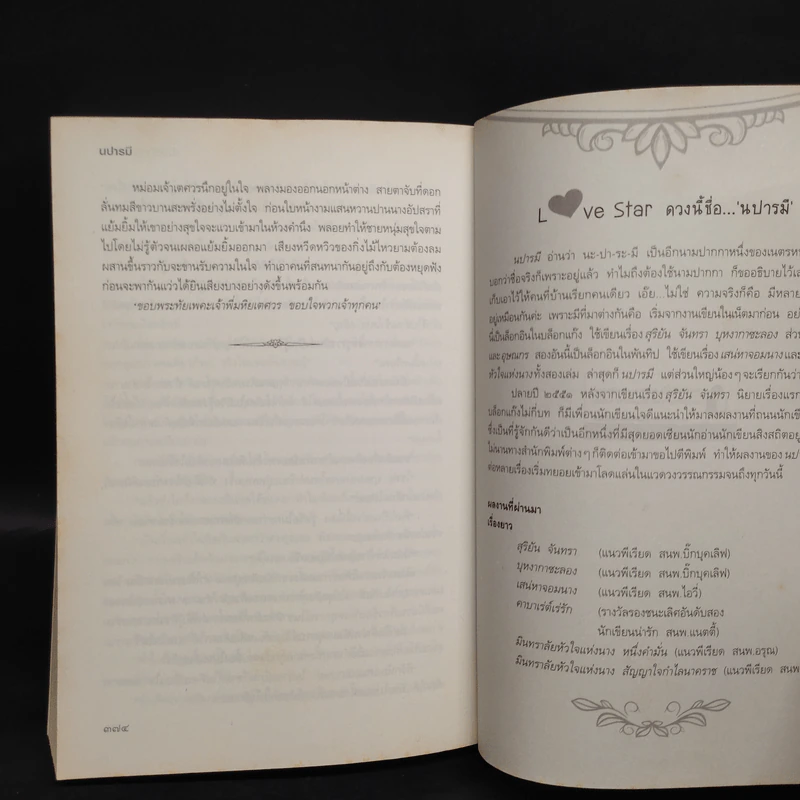 นปารมี
หม่อมเจ้าเตศวรนึกอยู่ในใจ พลางมองออกนอกหน้าต่าง สายตาจับที่ดอก
ลั่นทมสีขาวบานสะพรั่งอย่างไม่ตั้งใจ ก่อนใบหน้างามแสนหวานปานนางอัปสราที่
แย้มยิ้มให้เขาอย่างสุขใจจะแวบเข้ามาในห้วงคำนึง พลอยทำให้ชายหนุ่มสุขใจตาม
ไปโดยไม่รู้ตัวจนเผลอแย้มยิ้มออกมา เสียงหวีดหวิวของกิ่งไม้ไหวยามต้องลม
ผสานขึ้นราวกับจะขานรับความในใจ ทำเอาคนที่สนทนากันอยู่ถึงกับต้องหยุดฟัง
ก่อนจะพากันแว่วได้ยินเสียงบางอย่างดังขึ้นพร้อมกัน
'ขอบพระทัยเพคะเจ้าพี่มหิยเตศวร ขอบใจพวกเจ้าทุกคน'
๓๗๔
L ve Star ดวงนี้ชื่อ...'นปารมี'
นปารมี อ่านว่า นะ-ปา-ระ-มี เป็นอีกนามปากกาหนึ่งของเนตรห
บอกว่าชื่อจริงก็เพราะอยู่แล้ว ทำไมถึงต้องใช้นามปากกา ก็ขออธิบายไว้
เก็บเอาไว้ให้คนที่บ้านเรียกคนเดียว เอ๊ย...ไม่ใช่ ความจริงก็คือ มีหลาย
อยู่เหมือนกันค่ะ เพราะมีที่มาต่างกันคือ เริ่มจากงานเขียนในเน็ตมาก่อน
นี่เป็นล็อกอินในบล็อกแก๊ง ใช้เขียนเรื่อง สุริยัน จันทรา บุหงากาซะลอง ส่วน
และอุษณกร สองอันนี้เป็นล็อกอินในพันทิป ใช้เขียนเรื่อง เสน่หาจอมนาง และ
หัวใจแห่งนาง ทั้งสองเล่ม ล่าสุดก็ นปารมี แต่ส่วนใหญ่น้องๆ จะเรียกกันว่า
ปลายปี ๒๕๕๑ หลังจากเขียนเรื่อง สุริยัน จันทรา นิยายเรื่องแรก
บล็อกแก๊งไม่กี่บท ก็มีเพื่อนนักเขียนใจดีแนะนำให้มาลงผลงานที่ถนนนักเขีย
ซึ่งเป็นที่รู้จักกันดีว่าเป็นอีกหนึ่งที่มีสุดยอดเซียนนักอ่านนักเขียนสิงสถิตอยู่
ไม่นานทางสำนักพิมพ์ต่างๆ ก็ติดต่อเข้ามาขอไปตีพิมพ์ ทำให้ผลงานของ นป
ต่อหลายเรื่องเริ่มทยอยเข้ามาโลดแล่นในแวดวงวรรณกรรมจนถึงทุกวันนี้
ผลงานที่ผ่านมา
เรื่องยาว
สุริยัน จันทรา (แนวพีเรียด สนพ.บิ๊กบุคเลิฟ)
บุหงากาซะลอง (แนวพีเรียด สนพ.บิ๊กบุคเลิฟ)
เสน่หาจอมนาง (แนวพีเรียด สนพ.ไอวี่)
คาบาเร่ต์เร่รัก (รางวัลรองชนะเลิศอันดับสอง
นักเขียนน่ารัก สนพ.แนตตี้)
มินทราลัยหัวใจแห่งนาง หนึ่งคำมั่น (แนวพีเรียด สนพ.อรุณ)
มินทราลัยหัวใจแห่งนาง สัญญาใจกำไลนาคราช (แนวพีเรียด สนพ